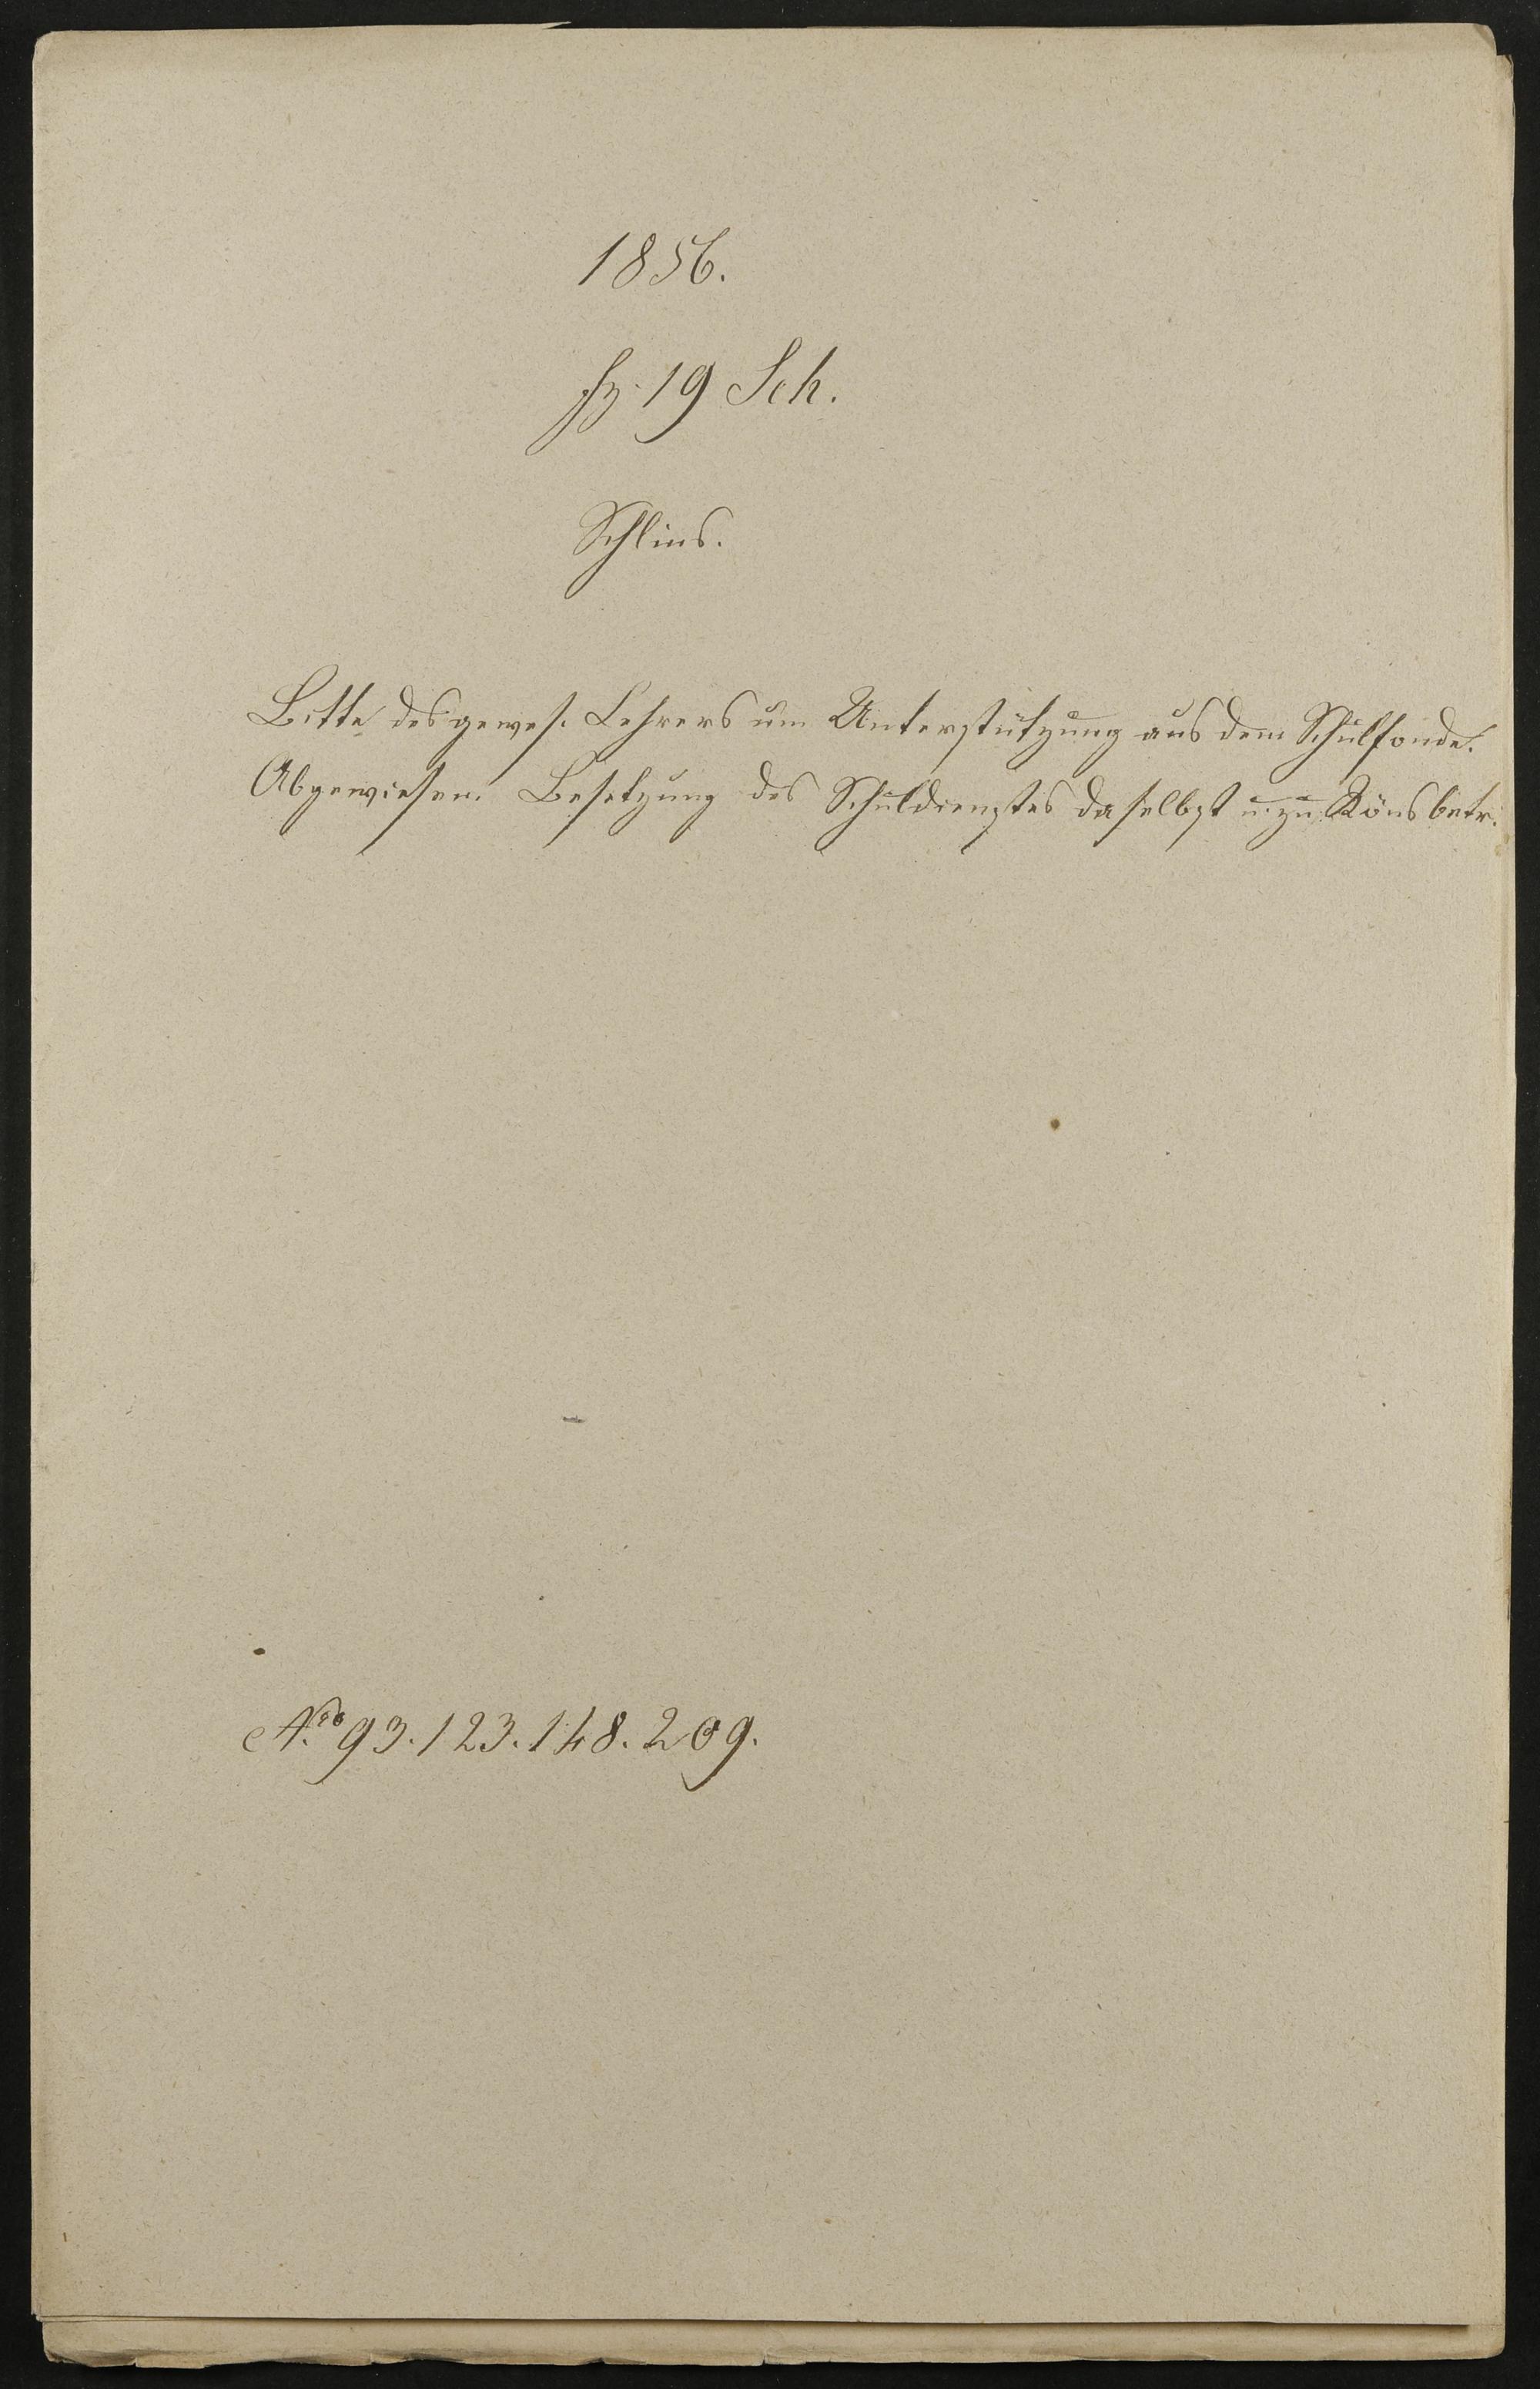 1856.
fz. 19 Sch.
Schlins.
Bitte des gewes. Lehrers um Unterstützung aus dem Schulfonde.
Abgewiesen. Besetzung des Schuldienstes daselbst u. zu Röns betr.
Nro 93. 123. 148. 209.